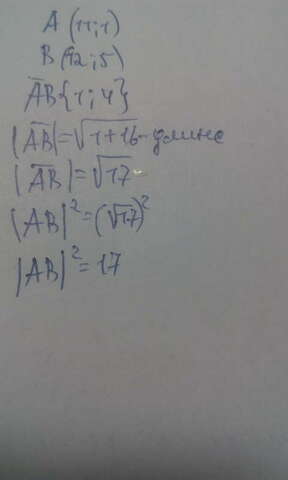 A (11;1)
B (12;5)
AB{1;4}
|AB|=√1+16-длина
|AB|=√17
|AB|²=(√17)²
|AB|²=17